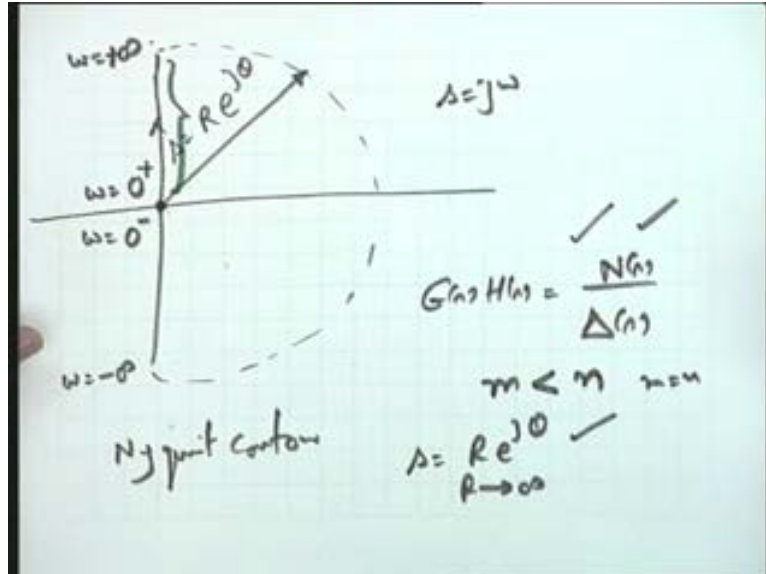 ω=+∞
s=Re^jθ
s=jω
ω=0⁺
ω=0⁻
G(s)H(s) = N(s)/Δ(s)
m < n m=n
ω=-∞
Nyquist contour
s= Re^jθ
R→∞